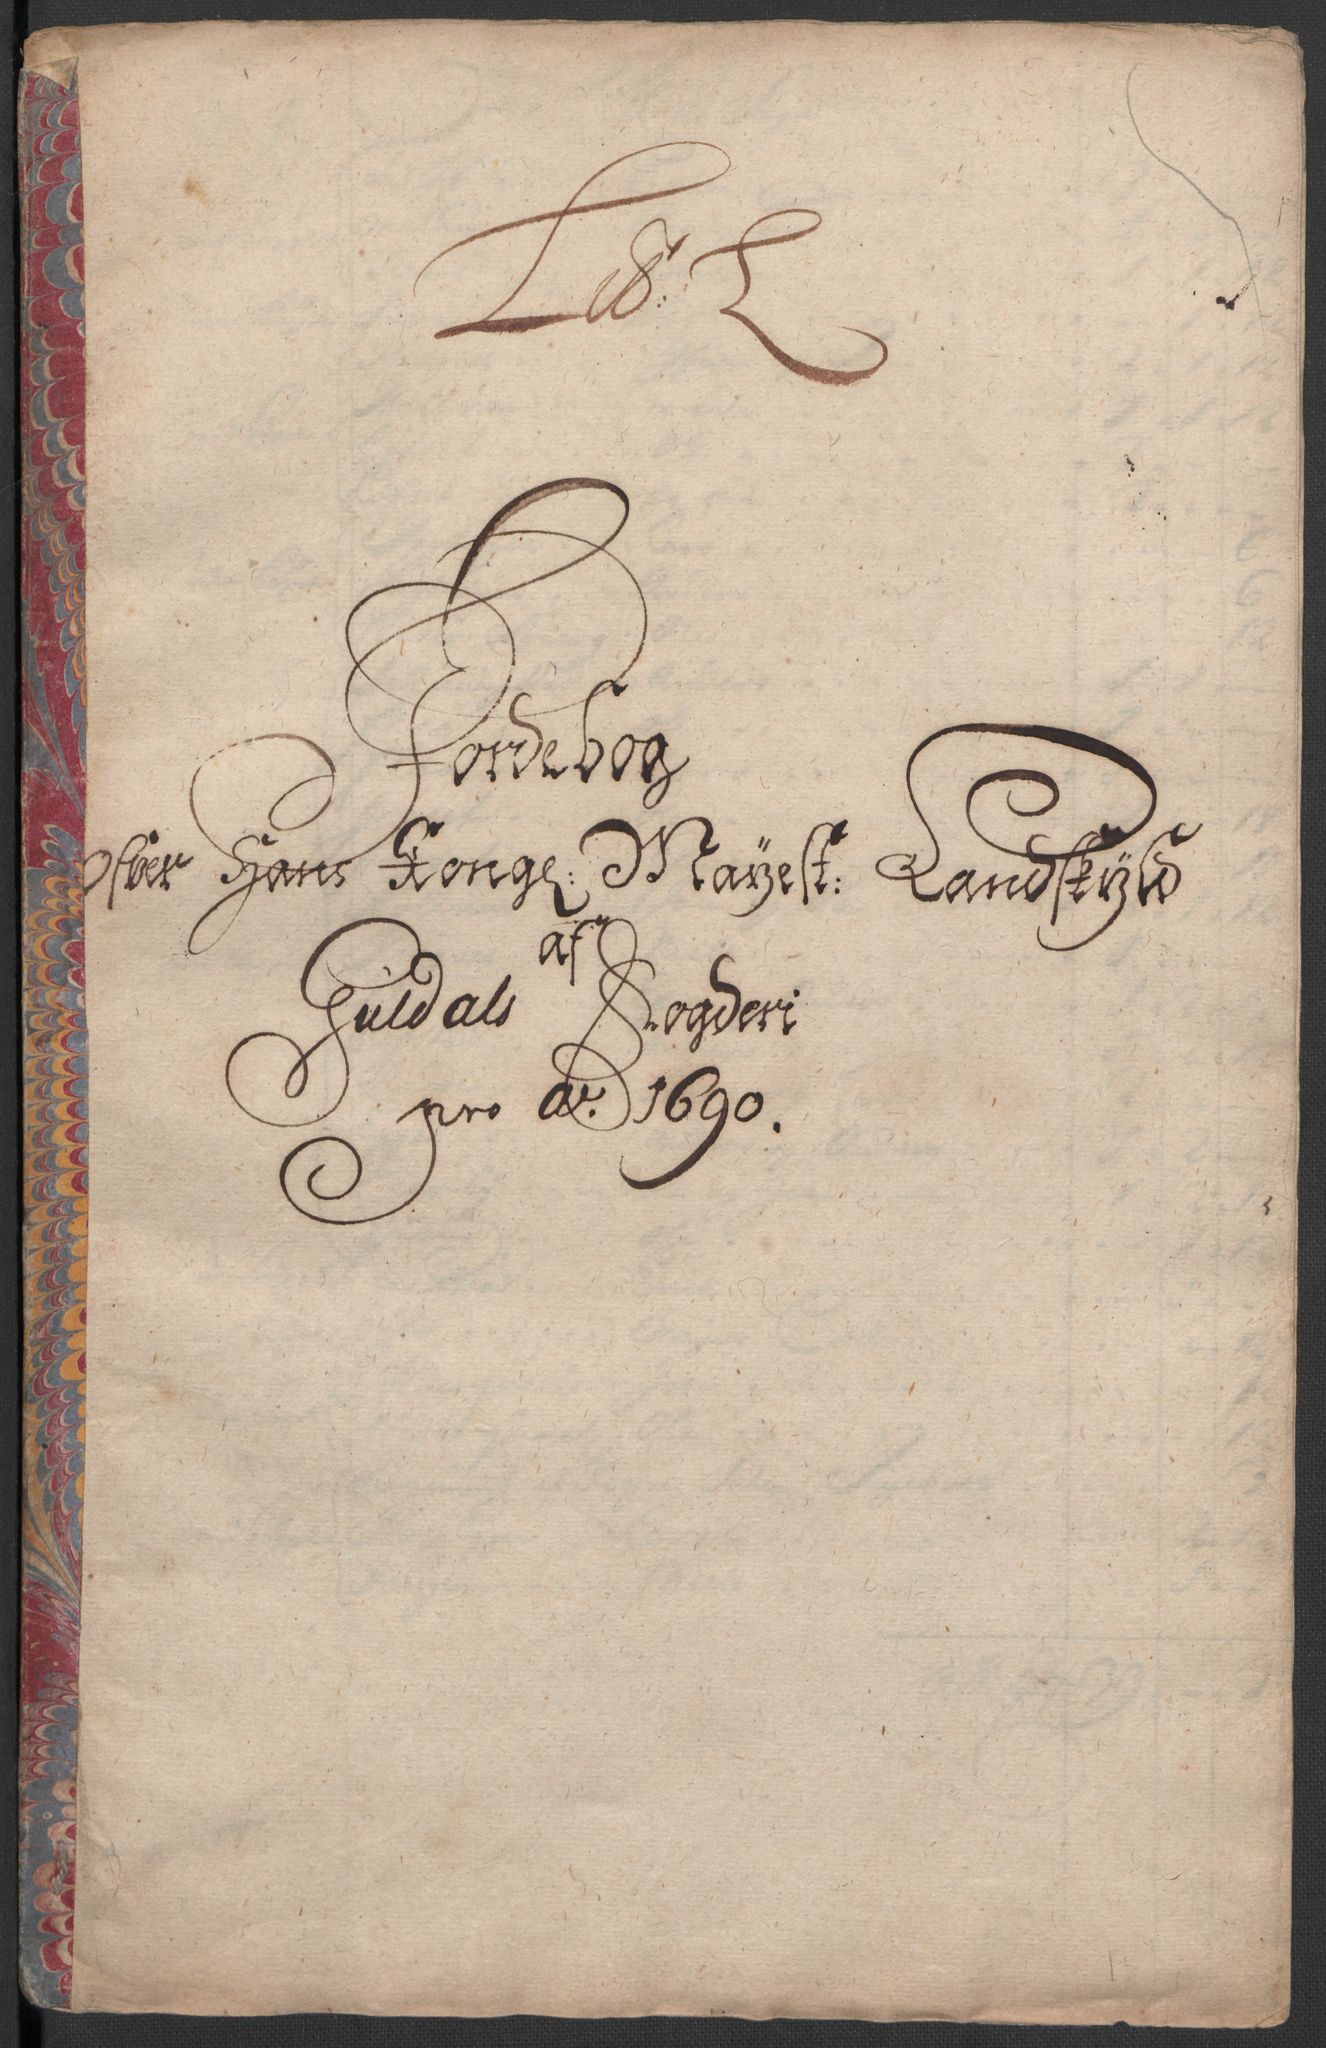 Litr: L
Jordebog
Ofver Hans Kongl: Mayest: Landskyld
af
Guldals Fogderi
pro Ao. 1690.